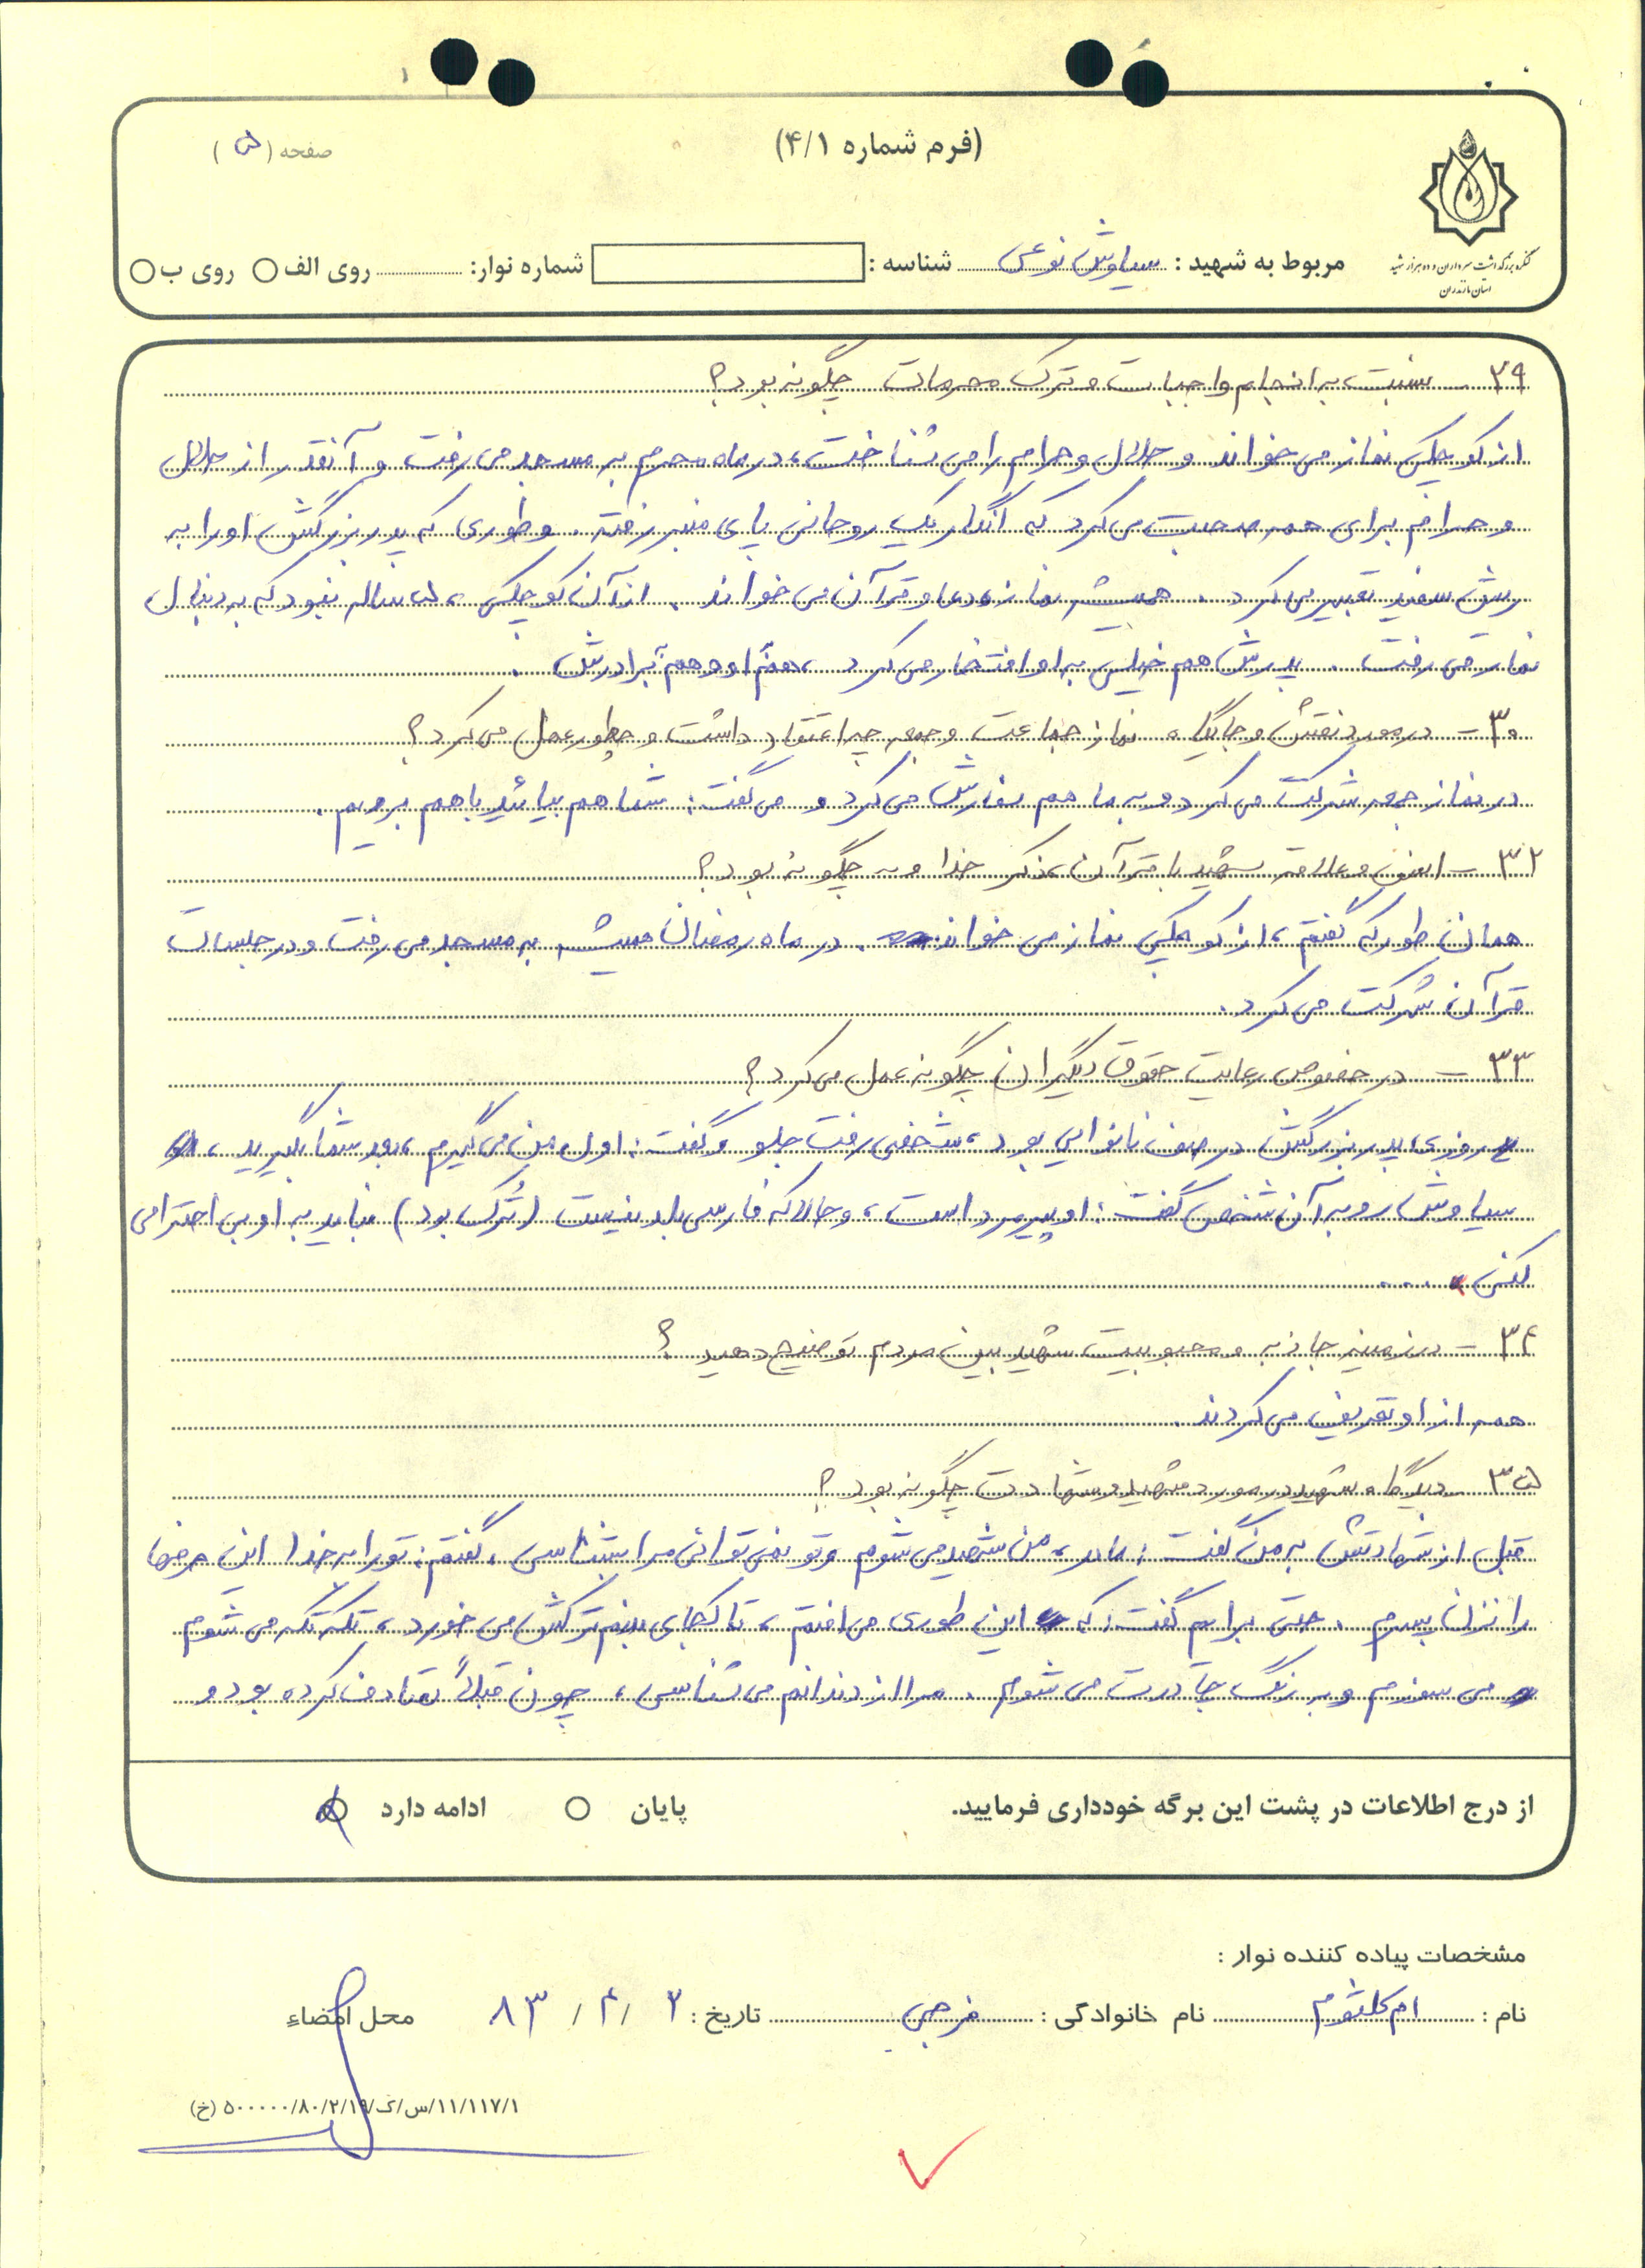 (فرم شماره ۴/۱)
صفحه (۵)
کنگره بزرگداشت سرداران و ده هزار شهید
استان مازندران
مربوط به شهید : سیاوش نوعی شناسه : شماره نوار: روی الف روی ب
۲۹ - نسبت به انجام واجبات و ترک محرمات چگونه بود؟
از کوچکی نماز می خواند و حلال و حرام را می شناخت، در ماه محرم به مسجد می رفت و آنقدر از حلال
و حرام برای همه صحبت می کرد که انگار یک روحانی پای منبر رفته. و طوری که پدربزرگش او را به
ریش سفید تعبیر می کرد. همیشه نماز، دعا و قرآن می خواند. از آن کوچکی، ۵ ساله نبود که به دنبال
نماز می رفت. پدرش هم خیلی به او افتخار می کرد، هم او و هم برادرش.
۳۰ - در مورد نقش و جایگاه نماز جماعت و جمعه چه اعتقاد داشت و چطور عمل می کرد؟
در نماز جمعه شرکت می کرد و به ما هم سفارش می کرد و می گفت: شما هم بیائید با هم برویم.
۳۲ - انس و علاقه شهید با قرآن، ذکر خدا و چگونه بود؟
همان طور که گفتم، از کوچکی نماز می خواند. در ماه رمضان همیشه به مسجد می رفت و در جلسات
قرآن شرکت می کرد.
۳۳ - در خصوص رعایت حقوق دیگران چگونه عمل می کرد؟
روزی پدربزرگش در صف نانوایی بود، شخصی رفت جلو و گفت: اول من می گیرم، بعد شما بگیرید،
سیاوش رو به آن شخص گفت: او پیرمرد است، و حالا که فارسی بلد نیست (تُرک بود) نباید به او بی احترامی
کنی ...
۳۴ - در زمینه جاذبه و محبوبیت شهید بین مردم توضیح دهید؟
همه از او تعریف می کردند.
۳۵ - دیدگاه شهید در مورد شهید و شهادت چگونه بود؟
قبل از شهادتش به من گفت: مادر، من شهید می شوم و تو نمی توانی مرا بشناسی، گفتم: تو را به خدا این حرفها
را نزن پسرم. حتی برایم گفت که این طوری می افتم، تا کجای بدنم ترکش می خورد، تکه تکه می شوم
می سوزم و به رنگ چادرت می شوم. مرا از دندانم می شناسی، چون قبلاً تصادف کرده بود و
از درج اطلاعات در پشت این برگه خودداری فرمایید. پایان ادامه دارد
مشخصات پیاده کننده نوار :
نام : ام کلثوم نام خانوادگی : فرجی تاریخ : ۲ / ۴ / ۸۳ محل امضاء
۱۱/۱۱۷/۱/س/ک/۸۰/۲/۱۹/۵۰۰۰۰۰ (خ)